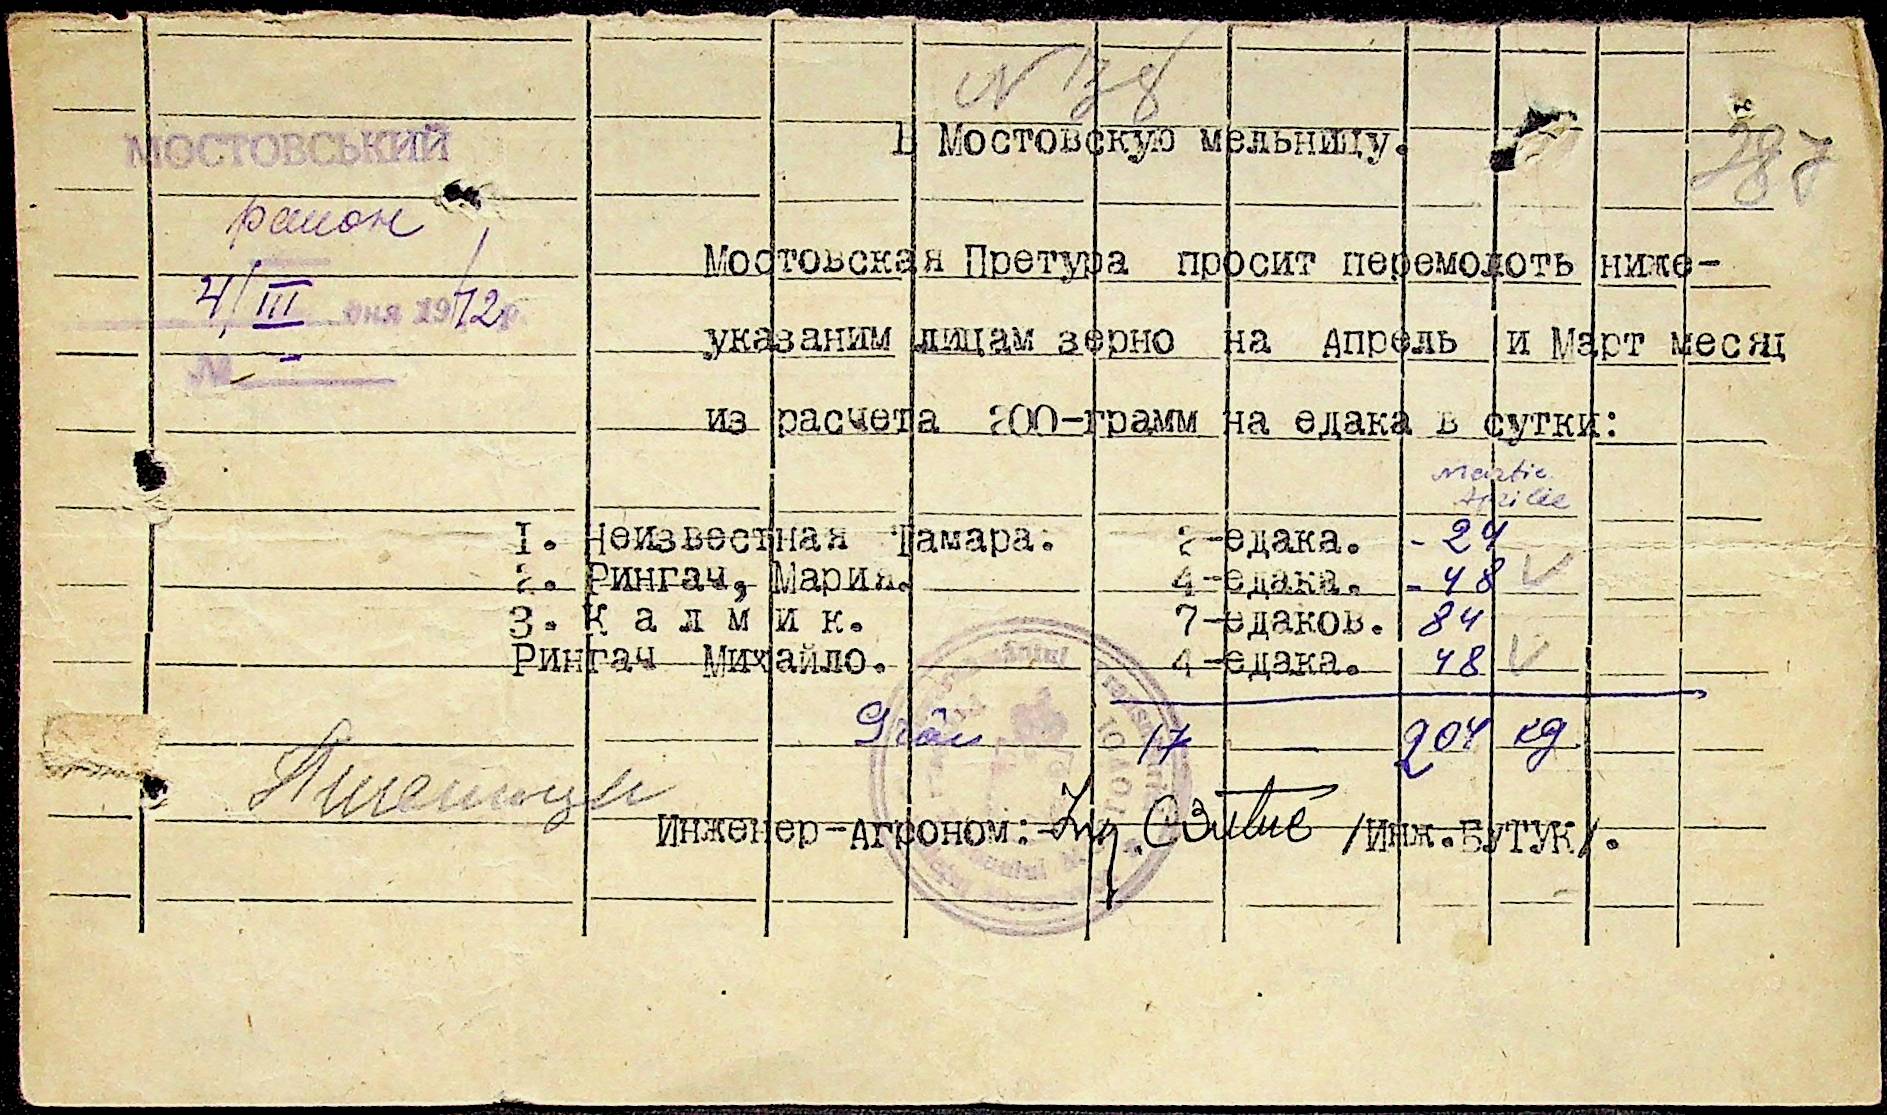 N 138
В Мостовскую мельницу.
287
МОСТОВСЬКИЙ
район
4/III дня 1942р.
№ -
Мостовская Претура просит перемолоть ниже-
указаним лицам зерно на Апрель и Март месяц
из расчета 200-грамм на едака в сутки:
Martie
Aprilie
1. Неизвестная Тамара. 2-едака. - 24
2. Рингач, Мария. 4-едака. - 48 V
3. К а л м и к. 7-едаков. 84
Рингач Михайло. 4-едака. 48 V
Grâu 17 — 204 kg
Пшеницы
Инженер-Агроном:- Ing. /Инж.БУТУК/.